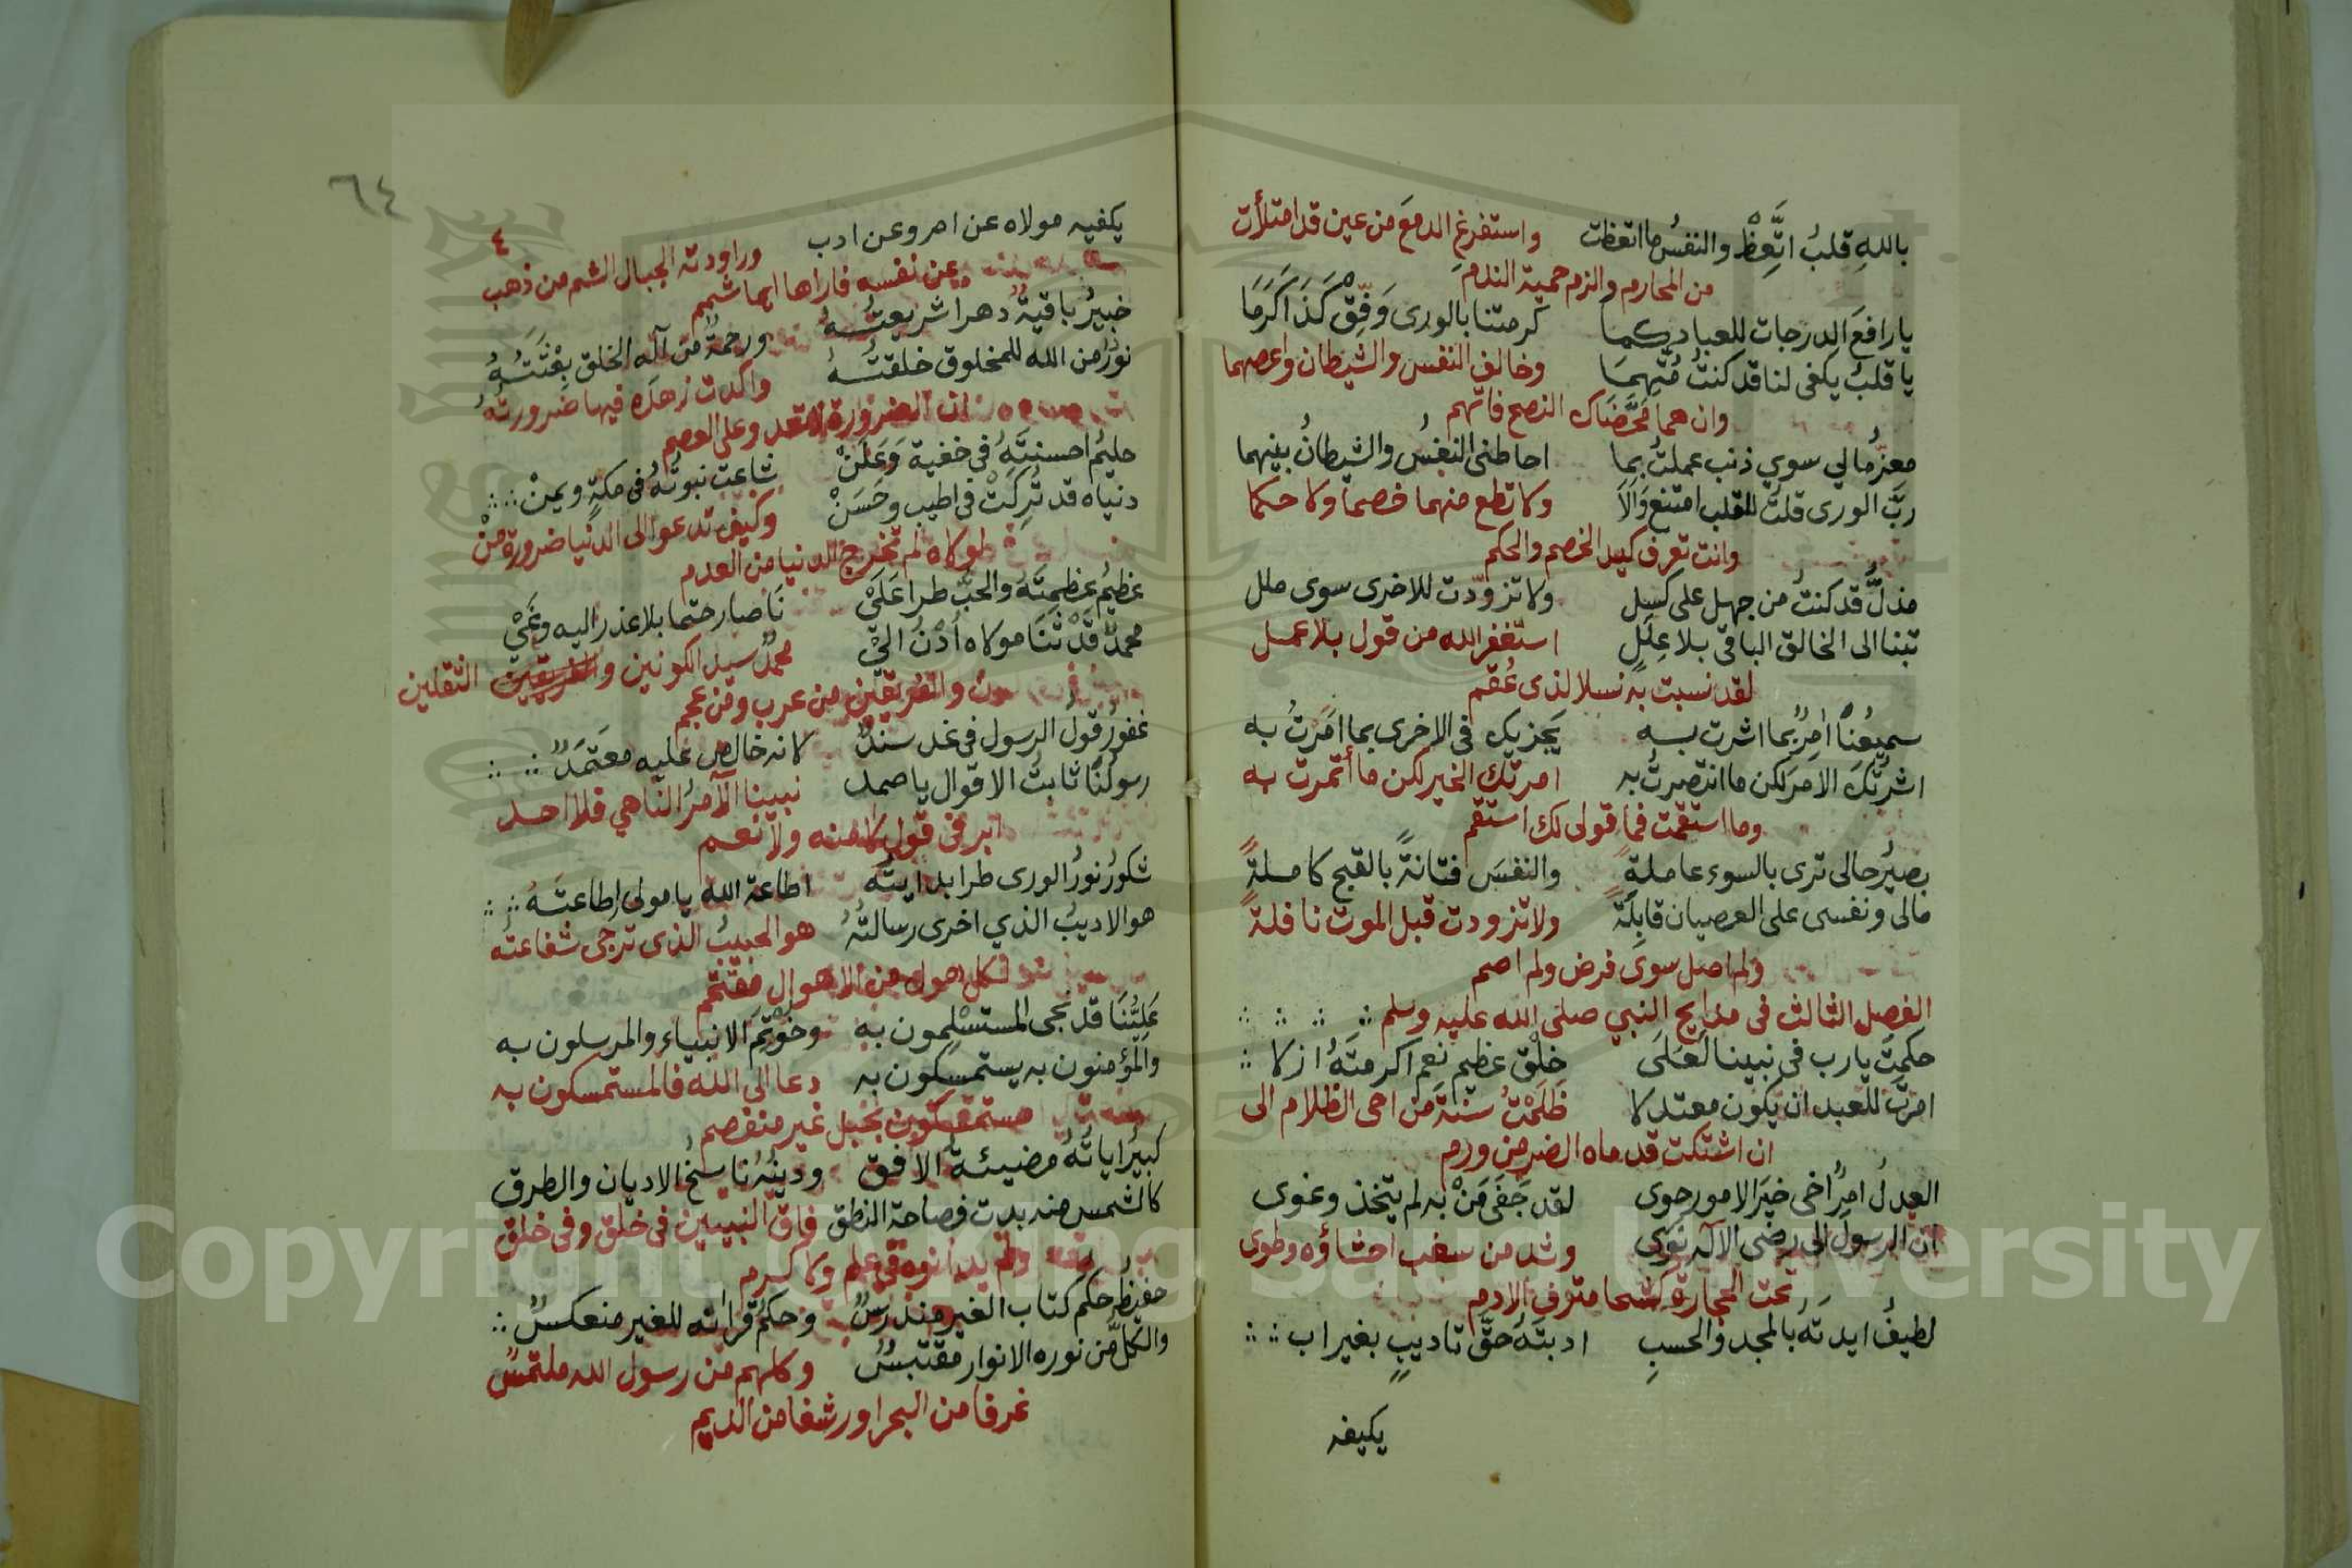 بالله قلبُ اتَّعِظْ والنفسُ ما اتعظت واستفرغ الدمعَ من عين قد امتلأت
من المحارم والزم حمية الندم
يا رافعَ الدرجات للعباد كما كرمتنا بالورى وَفِّقْ كَذَا كَرَمَا
يا قلبُ يكفى لنا قد كنتُ مُتَّهِمَا وخالف النفس والشيطان واعصهما
وان هما محَّضَاك النصح فاتهم
معزُّ مالي سوي ذنب عملتُ بما احاطنى النفسُ والشيطانُ بينهما
ربَّ الورى قلتُ للقلب امتنع وَالَا ولا تطع منهما خصما ولا حكما
وانت تعرف كيد الخصم والحكم
مذلُّ قد كنتُ من جهل على كسل ولا تزوّدت للاخرى سوى ملل
تبنا الى الخالق الباقى بلا عِلَلٍ استغفر الله من قول بلا عمل
لقد نسبت به نسلا لذى عُقُم
سميعُنا امِرٌ بما اشرت به يَجزيك فى الاخرى بما امَرْتُ به
اشرتُكَ الامرَ لكن ما انتصرتُ به امرتك الخير لكن ما أتمرت به
وما استقمت فما قولى لك استقم
بصيرُ حالى ترى بالسوء عاملةً والنفسَ فتانةً بالقبح كاملةً
مالى ونفسى على العصيان قابلةً ولا تزودت قبل الموت نافلةً
ولم اصل سوى فرض ولم اصم
الفصل الثالث فى مدايح النبي صلى الله عليه وسلم
حكمتَ يا رب فى نبينا لَعَلَى خلْق عظيم نعم اكرمتَهُ ازلا
امرتَ للعبد ان يكون معتدلا ظَلَمْتُ سنة من احى الظلام الى
ان اشتكت قدماه الضر من ورم
العدلُ امِرٌ اخى خيرَ الامور حوى لقد جَفَى مَنْ به لم يتخذ وغوى
ان الرسول الى رضى الاله نَوَى وشد من سغب احشاؤه وطوى
تحت الحجارة كشحا مترف الادم
لطيفُ ايدتَهُ بالمجد والحسبِ ادبتَهُ حَقَّ تاديبٍ بغير اب
يكيفه
٦٤
٤
يكفيه مولاه عن امر وعن ادب وراودته الجبال الشم من ذهب
عن نفسه فاراها ايما شمم
خبيرُ باقيةٌ دهرا شريعتُهُ ورحمةٌ من اله الخلق بِعْثَتُهُ
نورٌ من الله للمخلوق خلقتُهُ واكدت زهدَه فيها ضرورتُهُ
ان الضرورة لا تعد وعلى العصم
حليمُ احسنتَهُ فى خفية وَعَلَنْ شاعت نبوتُهُ فى مكةٍ ويمنْ
دنياه قد تُرِكَتْ فى اطيب وحَسَنْ وكيف تدعو الى الدنيا ضرورة منْ
لولاه لم تخرج الدنيا من العدم
عظيمُ عظمتَهُ والحبَّ طرا عَلَىْ نَا صار حتما بلا عذر اليه وغَىْ
محمدٌ قَدْ ثَنَا مولاه اُدْنُ الىّ محمدٌ سيد الكونين والثقلين
والفريقين من عرب ومن عجم
غفورُ قولُ الرسول فى غد سندٌ لانه خالص عليه معتَمَدٌ
رسولُنا ثابتُ الاقوال يا صمد نبينا الآمرُ الناهي فلا احد
ابر فى قول لا منه ولا نعم
شكورُ نورُ الورى طرا بدايتُه اطاعة الله يا مولى اطاعتَهُ
هو الاديبُ الذي اخرى رسالتُهُ هو الحبيبُ الذى ترجى شفاعته
لكل هول من الاهوال مقتحم
عَلِيُّنَا قد نجى المستسْلِمون به وخوْتِمَ الانبياء والمرسلون به
والمؤمنون به يستمسكون به دعا الى الله فالمستمسكون به
مستمسكون بحبل غير منفصم
كبيرُ اياتُهُ مضيئةُ الافق ودينُهُ ناسخُ الاديان والطرق
كالشمس منه بدت فصاحة النطق فاق النبيين فى خلق وفى خلق
ولم يدانوه فى علم ولا كرم
حفيظُ حكم كتاب الغير مندرسٌ وحكمُ قرانه للغير منعكسٌ
والكلُّ من نوره الانوار مقتبسٌ وكلهم من رسول الله ملتمسٌ
غرفا من البحر او رشفا من الديم